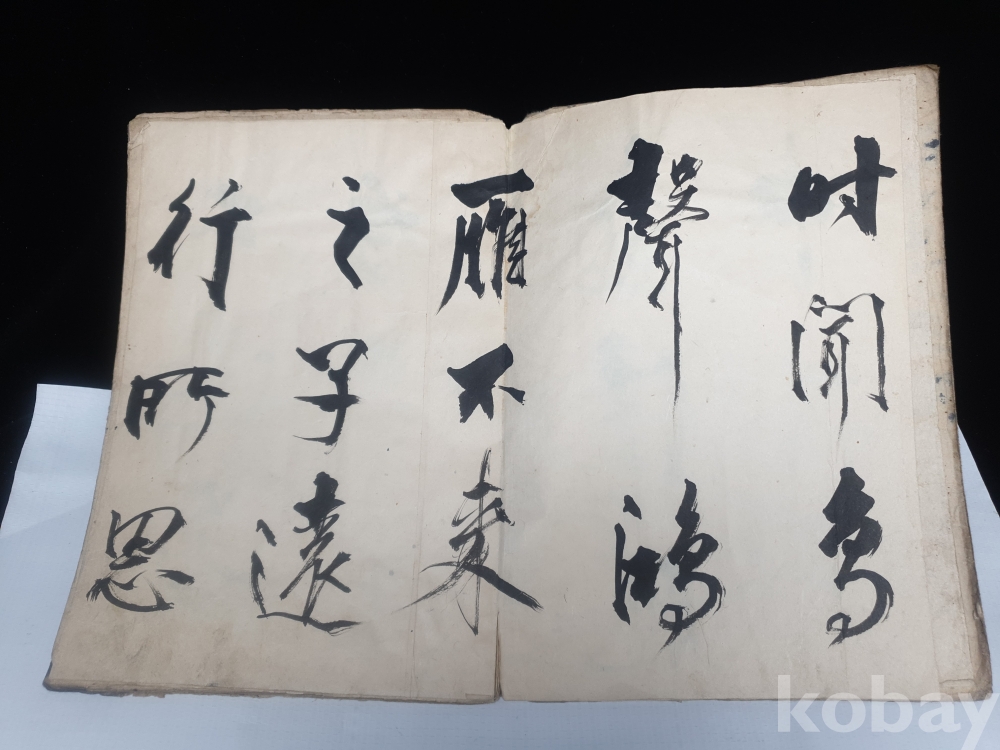 时聞鳥
聲鴻
雁不來
之子遠
行所思
kobay